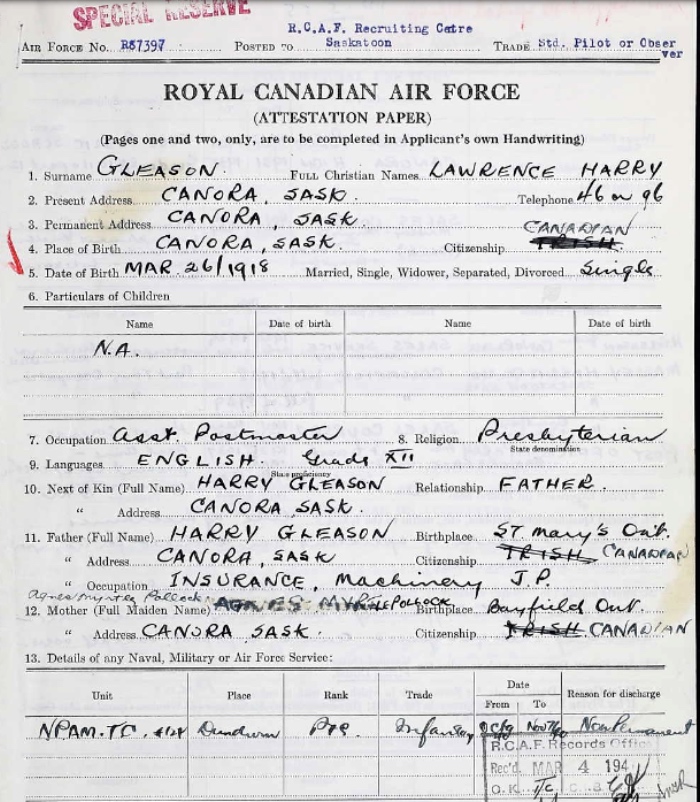 SPECIAL RESERVE
R.C.A.F. Recruiting Cetre
AIR FORCE No. R87397 POSTED TO Saskatoon TRADE Std. Pilot or Obser
ver
ROYAL CANADIAN AIR FORCE
(ATTESTATION PAPER)
(Pages one and two, only, are to be completed in Applicant's own Handwriting)
1. Surname GLEASON. FULL Christian Names LAWRENCE HARRY
2. Present Address CANORA, SASK. Telephone 46 or 96
3. Permanent Address CANORA, SASK
CANADIAN
4. Place of Birth CANORA, SASK. Citizenship IRISH.
5. Date of Birth MAR 26/1918 Married, Single, Widower, Separated, Divorced Single
6. Particulars of Children
Name Date of birth Name Date of birth
N.A.
7. Occupation Asst. Postmaster 8. Religion Presbyterian
State denomination
9. Languages ENGLISH. Grade XII
State proficiency
10. Next of Kin (Full Name) HARRY GLEASON Relationship FATHER.
" Address CANORA SASK.
11. Father (Full Name) HARRY GLEASON Birthplace ST. Mary's Ont.
" Address CANORA, SASK Citizenship IRISH CANADIAN
" Occupation INSURANCE, Machinery J.P.
Agnes Myrtle Pollock
12. Mother (Full Maiden Name) AGNES MYRTLE POLLOCK Birthplace Bayfield Ont.
" Address CANORA SASK. Citizenship IRISH CANADIAN
13. Details of any Naval, Military or Air Force Service:
Unit Place Rank Trade Date From To Reason for discharge
NPAM-TC. Dundurn Pte Infantry Non Permanent
R.C.A.F. Records Office
Rec'd MAR 4 194
O.K.